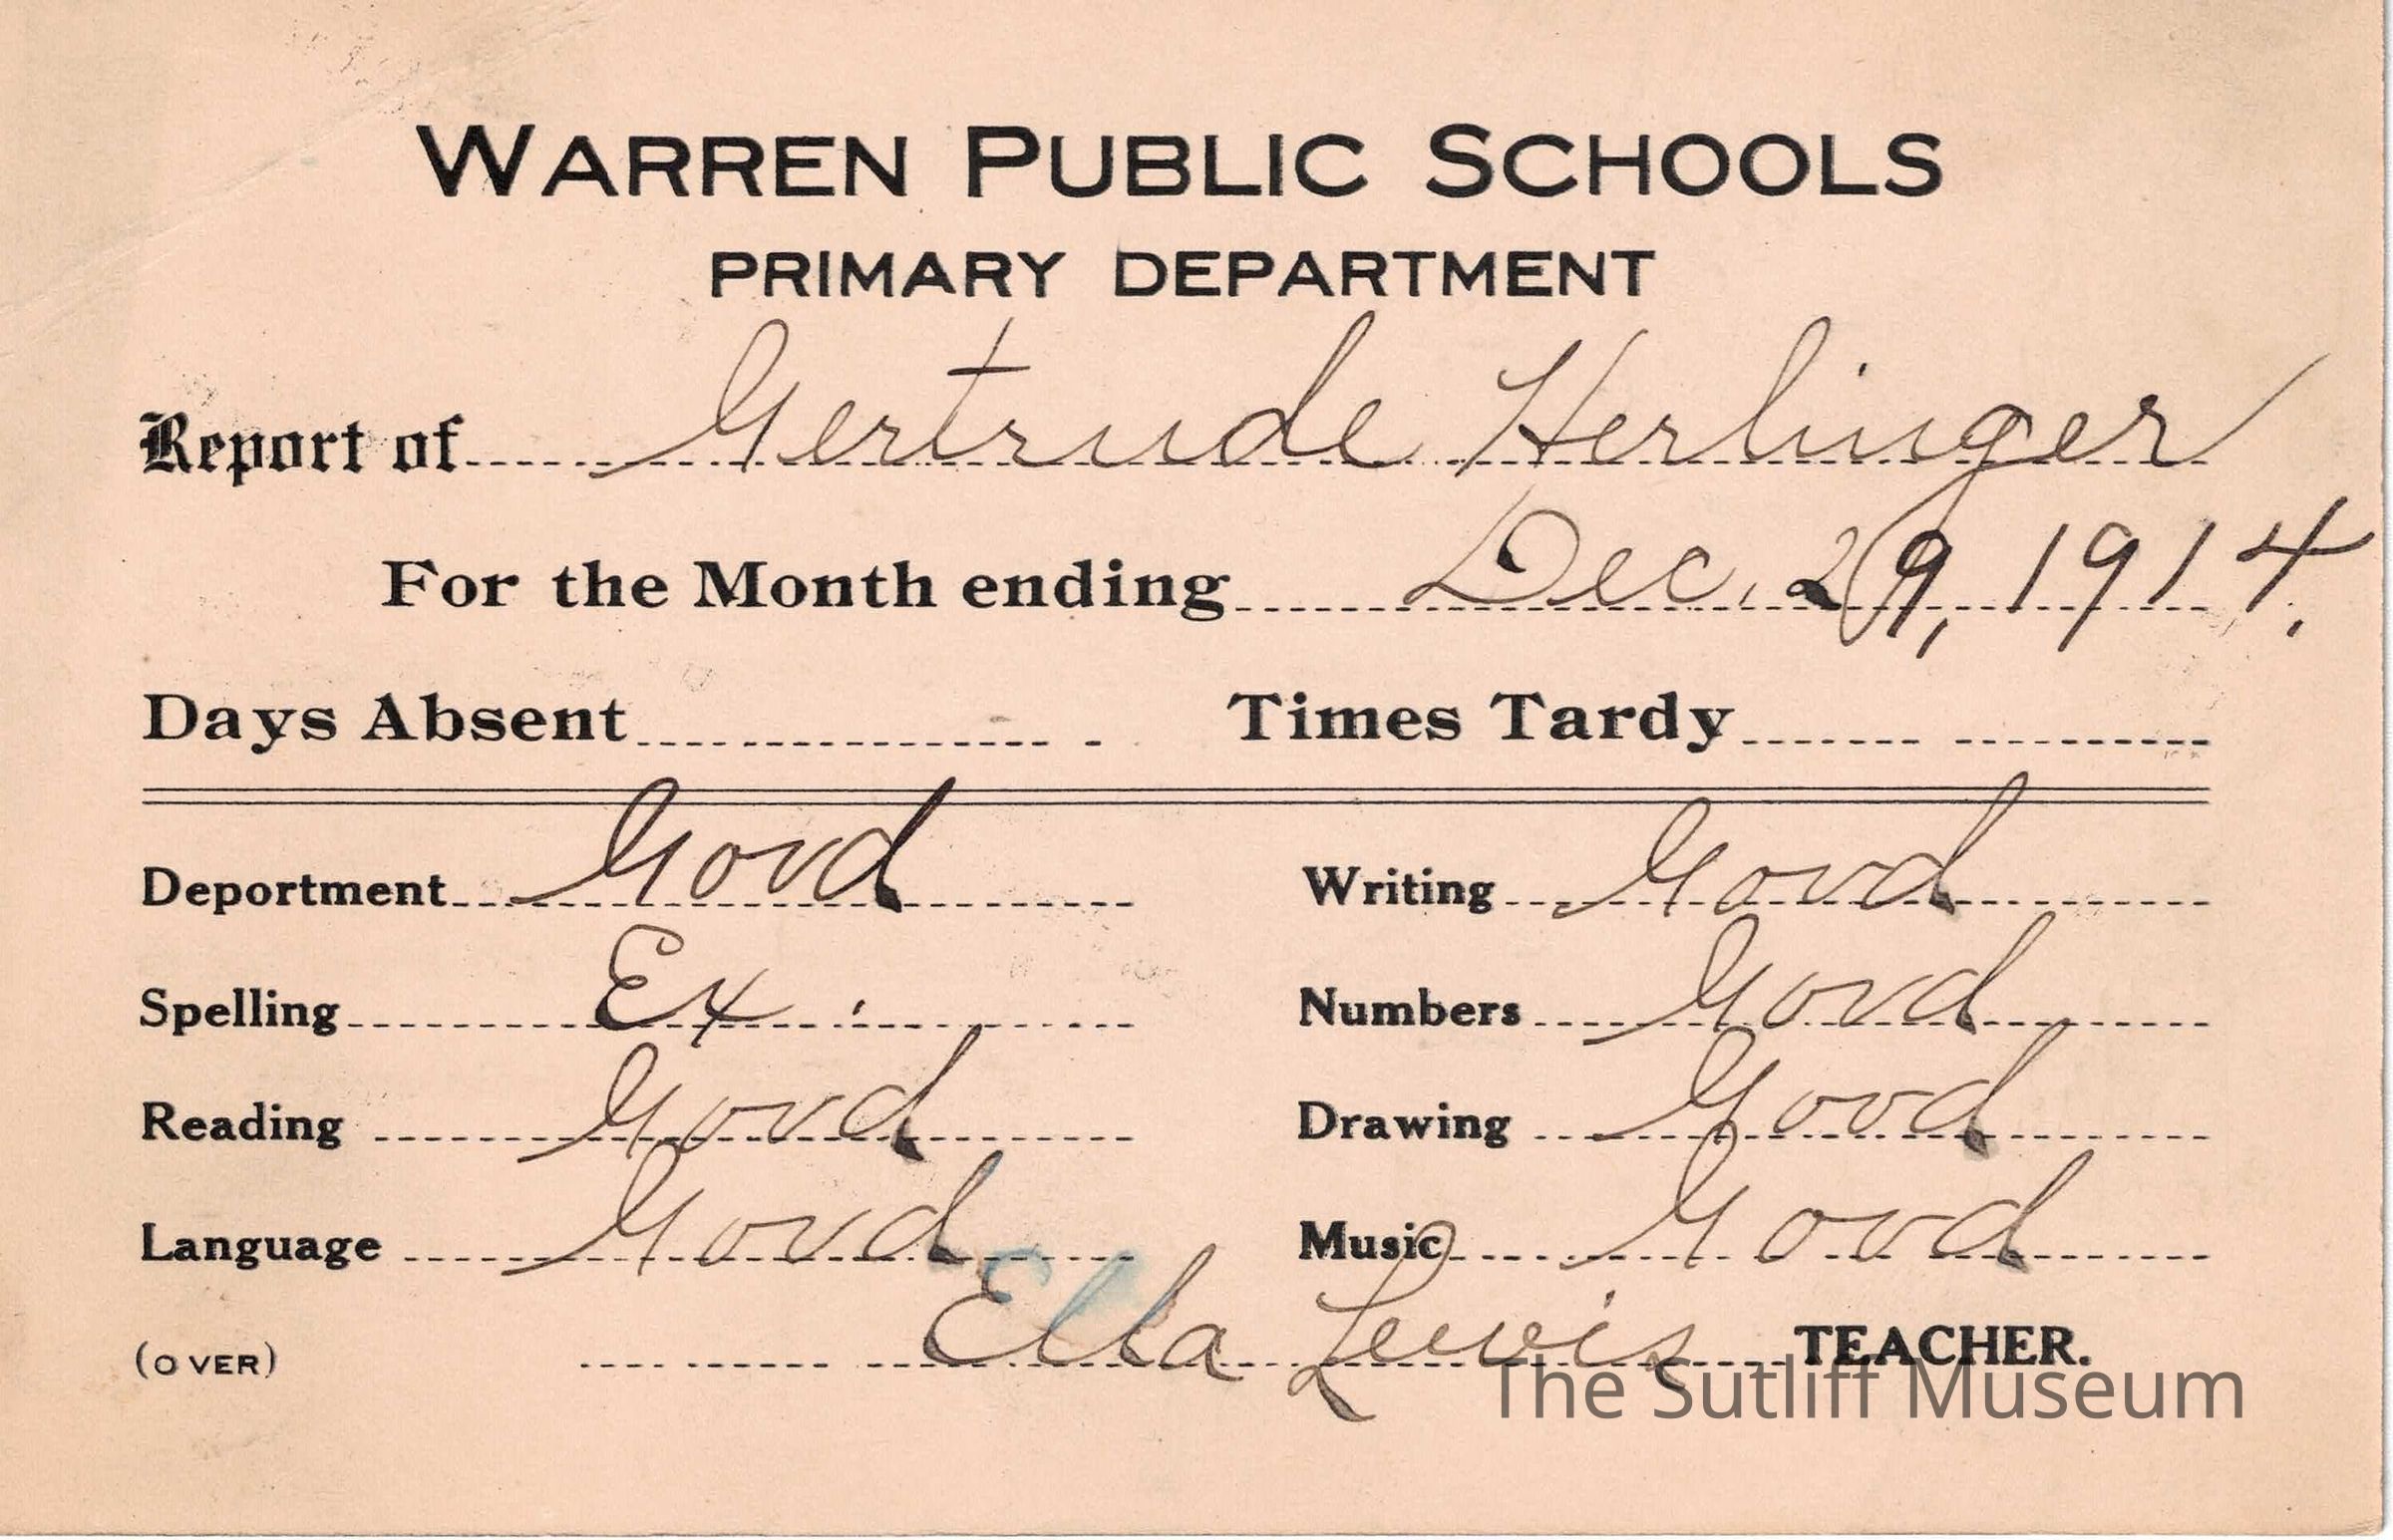 WARREN PUBLIC SCHOOLS
PRIMARY DEPARTMENT
Report of Gertrude Herlinger
For the Month ending Dec. 29, 1914.
Days Absent Times Tardy
Deportment Good Writing Good
Spelling Ex. Numbers Good
Reading Good Drawing Good
Language Good Music Good
(OVER) Ella Lewis TEACHER.
The Sutliff Museum